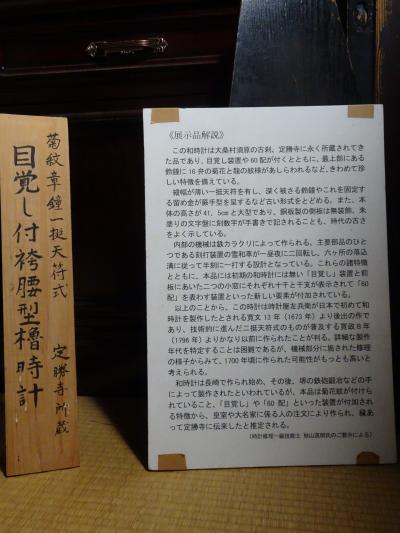 菊紋章鐘一挺天符式
目覚し付袴腰型櫓時計
定勝寺所蔵
《展示品解説》
この和時計は大桑村須原の古刹、定勝寺に永く所蔵されてき
た品であり、目覚し装置や60配が付くとともに、最上部にある
鈴鐘に16弁の菊花と龍の紋様があしらわれるなど、きわめて珍
しい特徴を備えている。
縦幅が薄い一挺天符を有し、深く被さる鈴鐘やこれを固定す
る留め金が蕨手型を呈するなど古い形式をとどめる。また、本
体の高さが41.5cmと大型であり、銅板製の側板は無装飾、朱
塗りの文字盤に刻数字が手書きで記されることも、時代の古さ
をよく示している。
内部の機械は鉄カラクリによって作られる。主要部品のひと
つである刻打装置の雪和車が一昼夜に二回転し、六ヶ所の落込
溝に従って半刻に一打する設計となっている。これらの諸特徴
とともに、本品には初期の和時計には無い「目覚し」装置と前
板にあいた二つの小窓にそれぞれ十干と干支が表示されて「60
配」を表わす装置といった新しい要素が付加されている。
以上のことから、この時計は時計屋左兵衛が日本で初めて和
時計を製作したとされる寛文13年(1673年)より後出の作で
あり、技術的に進んだ二挺天符式のものが普及する寛政8年
(1796年)よりかなり以前に作られたことが判る。詳細な製作
年代を特定することは困難であるが、機械部分に施された修理
の様子からみて、1700年頃に作られた可能性がもっとも高いと
考えられる。
和時計は長崎で作られ始め、その後、堺の鉄砲鍛冶などの手
によって製作されたといわれているが、本品は菊花紋が付けら
れていること、「目覚し」や「60配」といった装置が付加され
る特徴から、皇室や大名家に係る人の注文により作られ、縁あ
って定勝寺に伝来したと推定される。
(時計修理一級技能士 秋山直樹氏のご教示による)